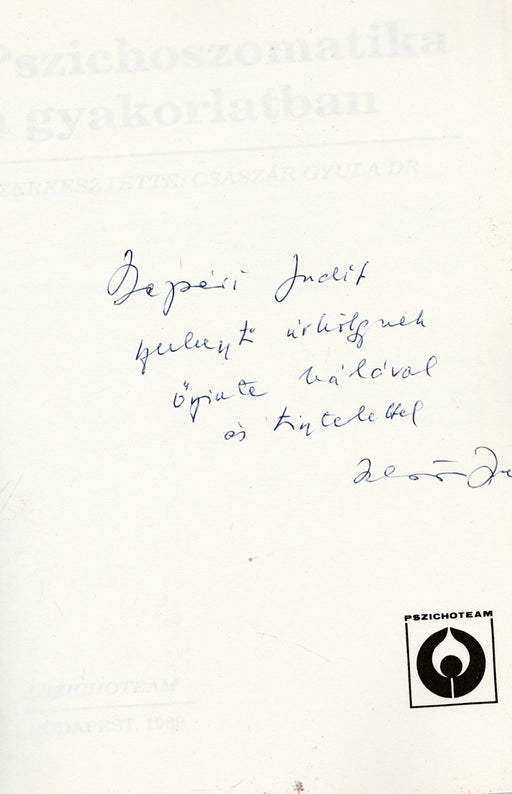 Pszichoszomatika
a gyakorlatban
SZERKESZTETTE: CSÁSZÁR GYULA DR.
Judit
úrhölgynek
őszinte hálával
és tisztelettel
PSZICHOTEAM
PSZICHOTEAM
BUDAPEST, 1989